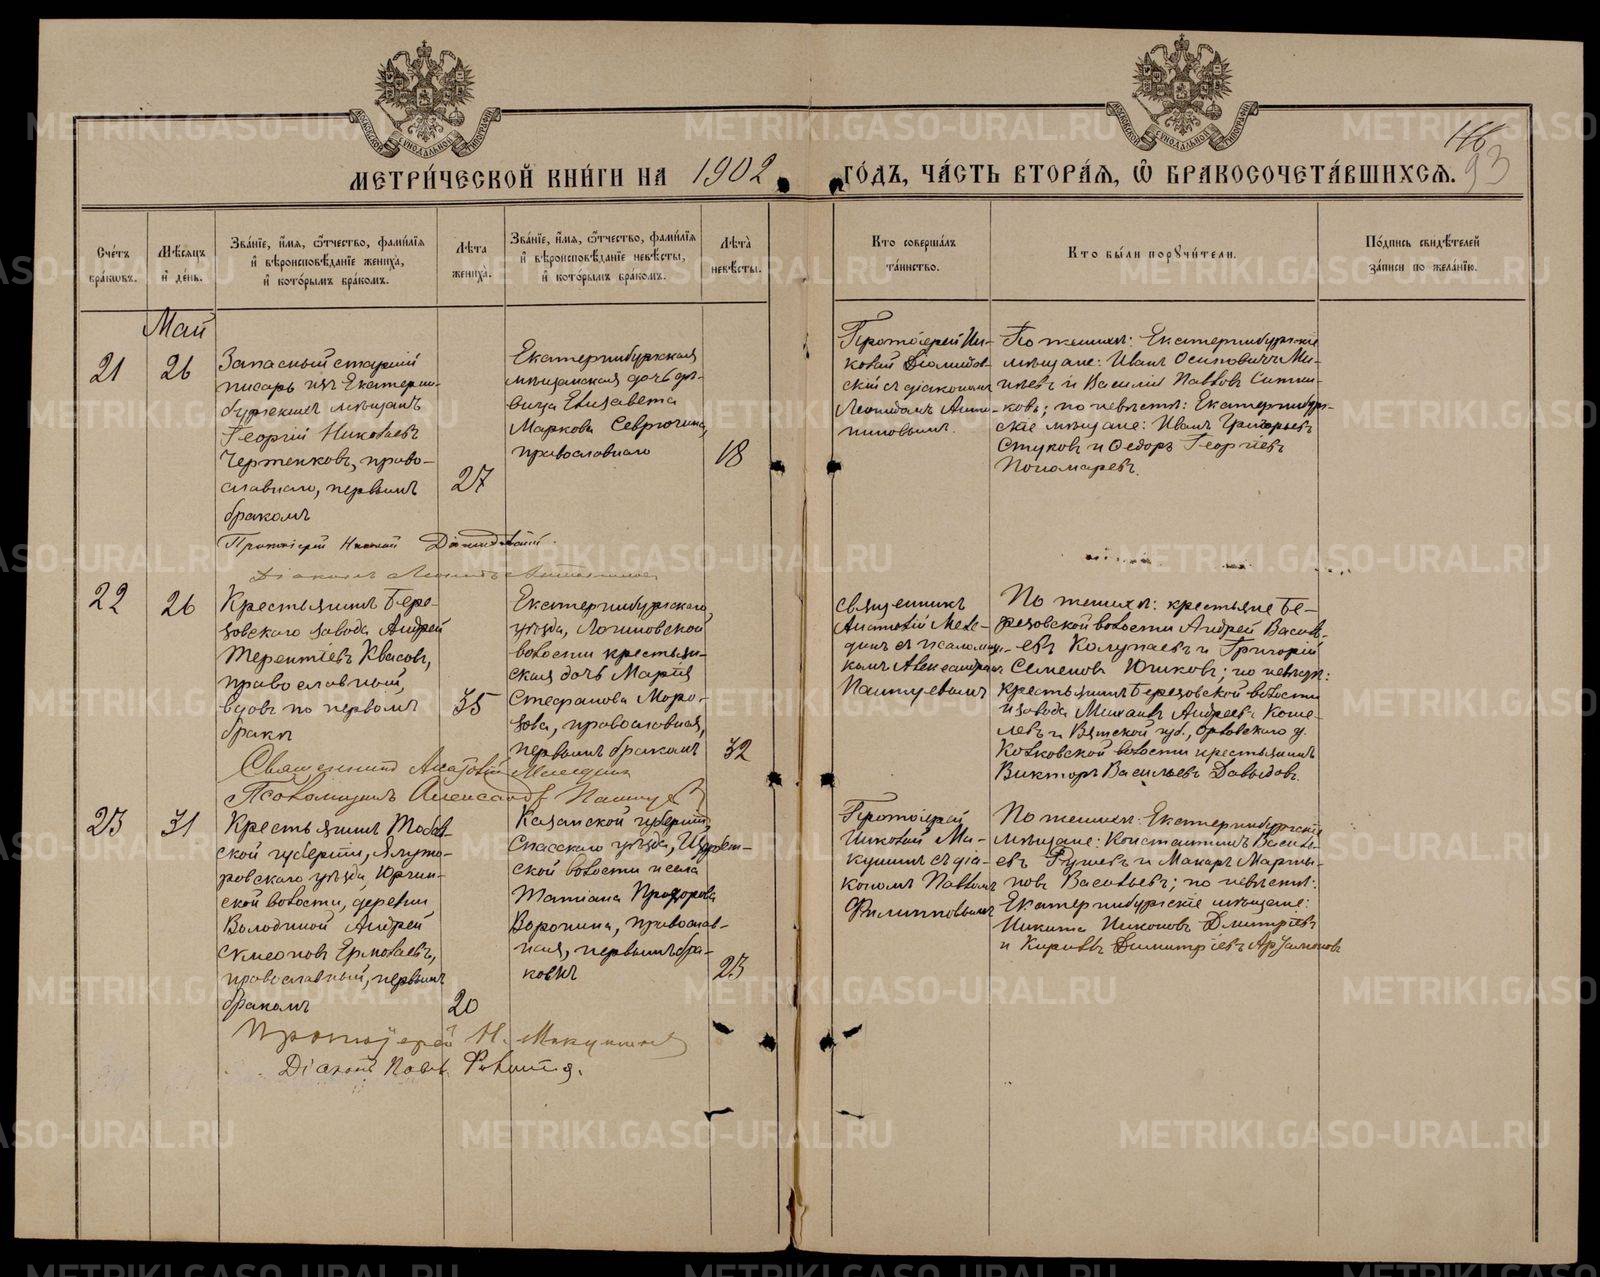 МОСКОВСКОЙ СУНОДАЛЬНОЙ ТИПОГРАФІИ
МОСКОВСКОЙ СУНОДАЛЬНОЙ ТИПОГРАФІИ
146
93
МЕТРИ́ЧЕСКОЙ КНИ́ГИ НА 1902 ГО́ДЪ, ЧА́СТЬ ВТОРА́Я, Ѡ҆ БРАКОСОЧЕТА́ВШИХСЯ.
Сче́тъ бра́ковъ.
Мѣ́сяцъ и҆ де́нь.
Зва́нїе, и҆́мя, ѻ҆́тчество, фами́лїя и҆ вѣроисповѣ́данїе жениха̀, и҆ кото́рымъ бра́комъ.
Лѣ́та жениха̀.
Зва́нїе, и҆́мя, ѻ҆́тчество, фами́лїя и҆ вѣроисповѣ́данїе невѣ́сты, и҆ кото́рымъ бра́комъ.
Лѣ́та невѣ́сты.
Кто̀ соверша́лъ та́инство.
Кто̀ бы́ли порꙋчи́тели.
По́дпись свидѣ́телей за́писи по жела́нїю.
Май
21
26
Запасный старшій
писарь изъ Екатерин-
бургскихъ мѣщанъ
Георгій Николаевъ
Чертенковъ, право-
славнаго, первымъ
бракомъ
27
Екатеринбургская
мѣщанская дочь дѣ-
вица Елизавета
Маркова Севрюгина,
православнаго
18
Протоіерей Ни-
колай Діомидов-
скій съ діакономъ
Леонидомъ Анти-
пиновымъ.
По женихѣ: Екатеринбургскіе
мѣщане: Иванъ Осиповичъ Ми-
и Василій Павловъ Ситни-
ковъ; по невѣстѣ: Екатеринбург-
скіе мѣщане: Иванъ Григорьевъ
Стуковъ и Ѳедоръ Георгіевъ
Пономаревъ.
Протоіерей Николай Діомидовскій.
Діаконъ Леонидъ
22
26
Крестьянинъ Бере-
зовскаго завода Андрей
Терентіевъ Квасовъ,
православный,
вдовъ по первомъ
бракѣ
35
Екатеринбургскаго
уѣзда, Логиновской
волости крестьян-
ская дочь Марія
Стефанова Моро-
зова, православная,
первымъ бракомъ
32
Священникъ
Анатолій Меле-
динъ съ псаломщи-
комъ Александромъ
По женихѣ: крестьяне Бе-
резовской волости Андрей Василь-
евъ Колупаевъ и Григорій
Семеновъ Юшковъ; по невѣстѣ:
крестьянинъ Березовской волости
и завода Михаилъ Андреевъ Коше-
левъ и Вятской губ., Орловскаго у.
Колковской волости крестьянинъ
Викторъ Васильевъ Давыдовъ.
Священникъ Анатолій Мелединъ
Псаломщикъ Александръ
23
31
Крестьянинъ Тоболь-
ской губерніи, Ялуто-
ровскаго уѣзда, Юргин-
ской волости, деревни
Володиной Андрей
Симеоновъ Ермолаевъ,
православный, первымъ
бракомъ
20
Казанской губерніи,
Спасскаго уѣзда,
ской волости и села
Татіана Прохорова
Воронина, православ-
ная, первымъ бра-
комъ
23
Протоіерей
Николай Ма-
кушинъ съ діа-
кономъ Павломъ
Филипповымъ
По женихѣ: Екатеринбургскіе
мѣщане: Константинъ Василь-
евъ и Макаръ Марты-
новъ Васильевъ; по невѣстѣ:
Екатеринбургскіе мѣщане:
Никита Никоновъ Дмитріевъ
и Кириллъ Димитріевъ Арзамасовъ
Протоіерей Н. Макушинъ
Діаконъ Павелъ
METRIKI.GASO-URAL.RU